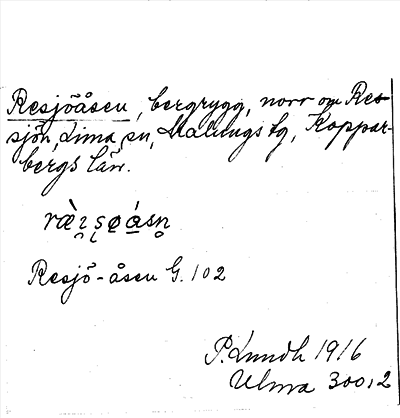 Resjöåsen, bergrygg, norr om Res-
sjön, Lima sn, Malungs tg, Koppar-
bergs län.
Resjö-åsen G. 102
P. Lundh 1916
Ulma 300,2